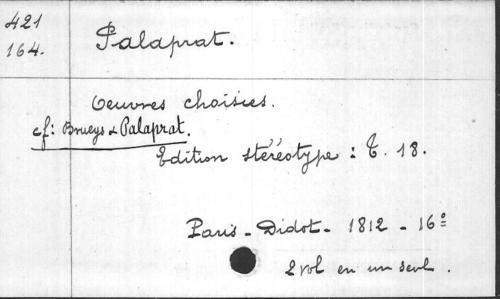 421
164.
Palaprat.
Oeuvres choisies.
cf: Brueys & Palaprat.
Edition stéréotype : T. 18.
Paris - Didot - 1812 - 16°
2 vol en un seul.